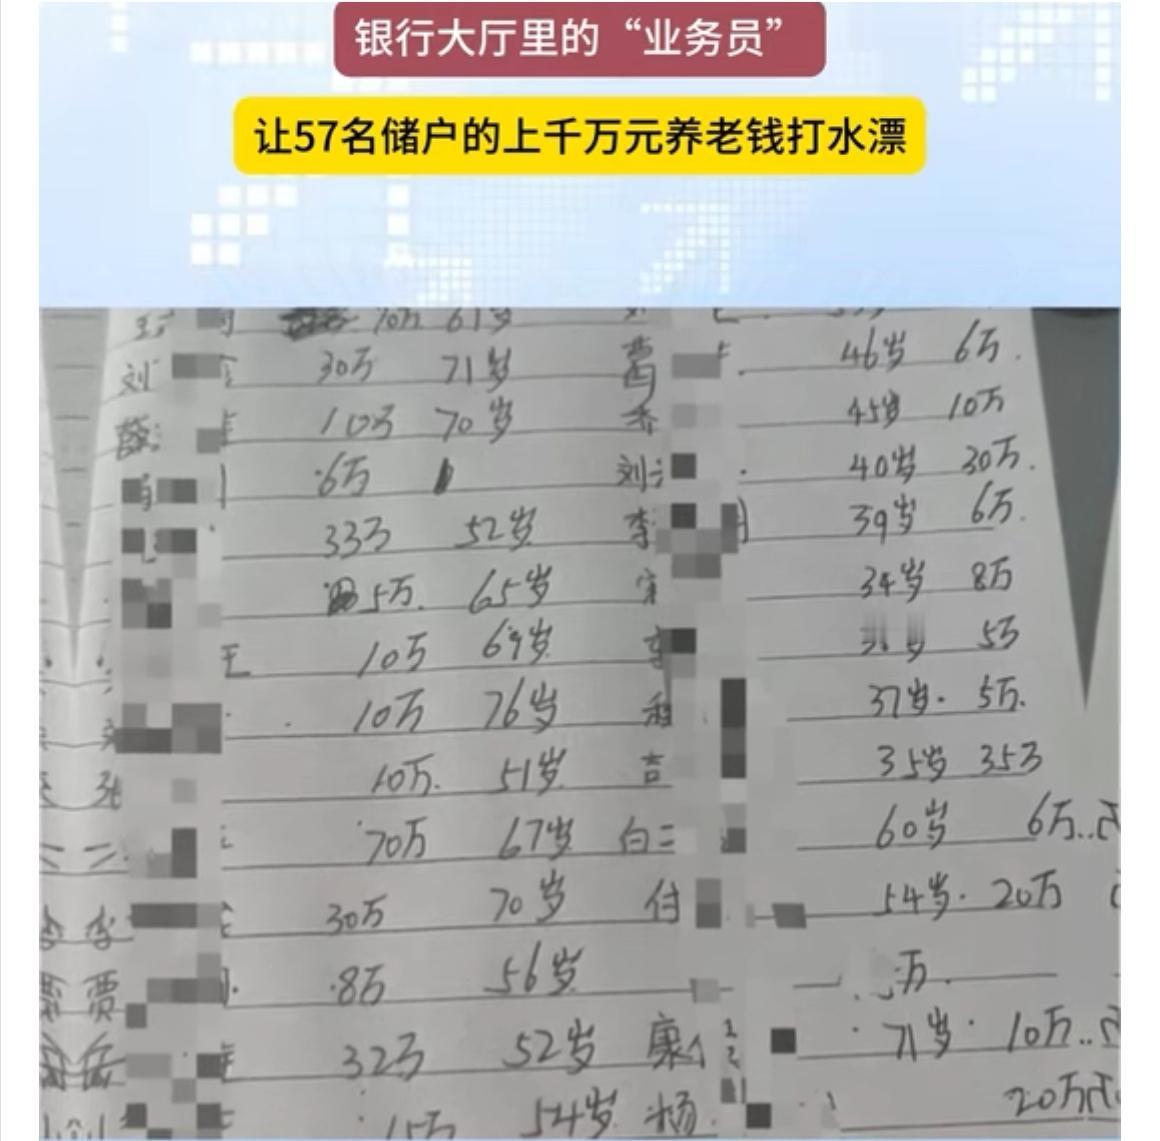 银行大厅里的“业务员”
让57名储户的上千万元养老钱打水漂
70万 61岁
刘 30万 71岁 46岁 6万.
10万 70岁 乔 45岁 10万
6万 刘 40岁 30万.
33万 52岁 李 39岁 6万.
5万. 65岁 34岁 8万
王 10万 69岁 李 5万
10万 76岁 37岁. 5万.
张 10万. 51岁 吉 35岁 35万
70万 67岁 白二 60岁 6万..
李 30万 70岁 付 54岁. 20万
贾 8万 56岁 万.
32万 52岁 康 71岁. 10万..
15万 54岁 杨 20万